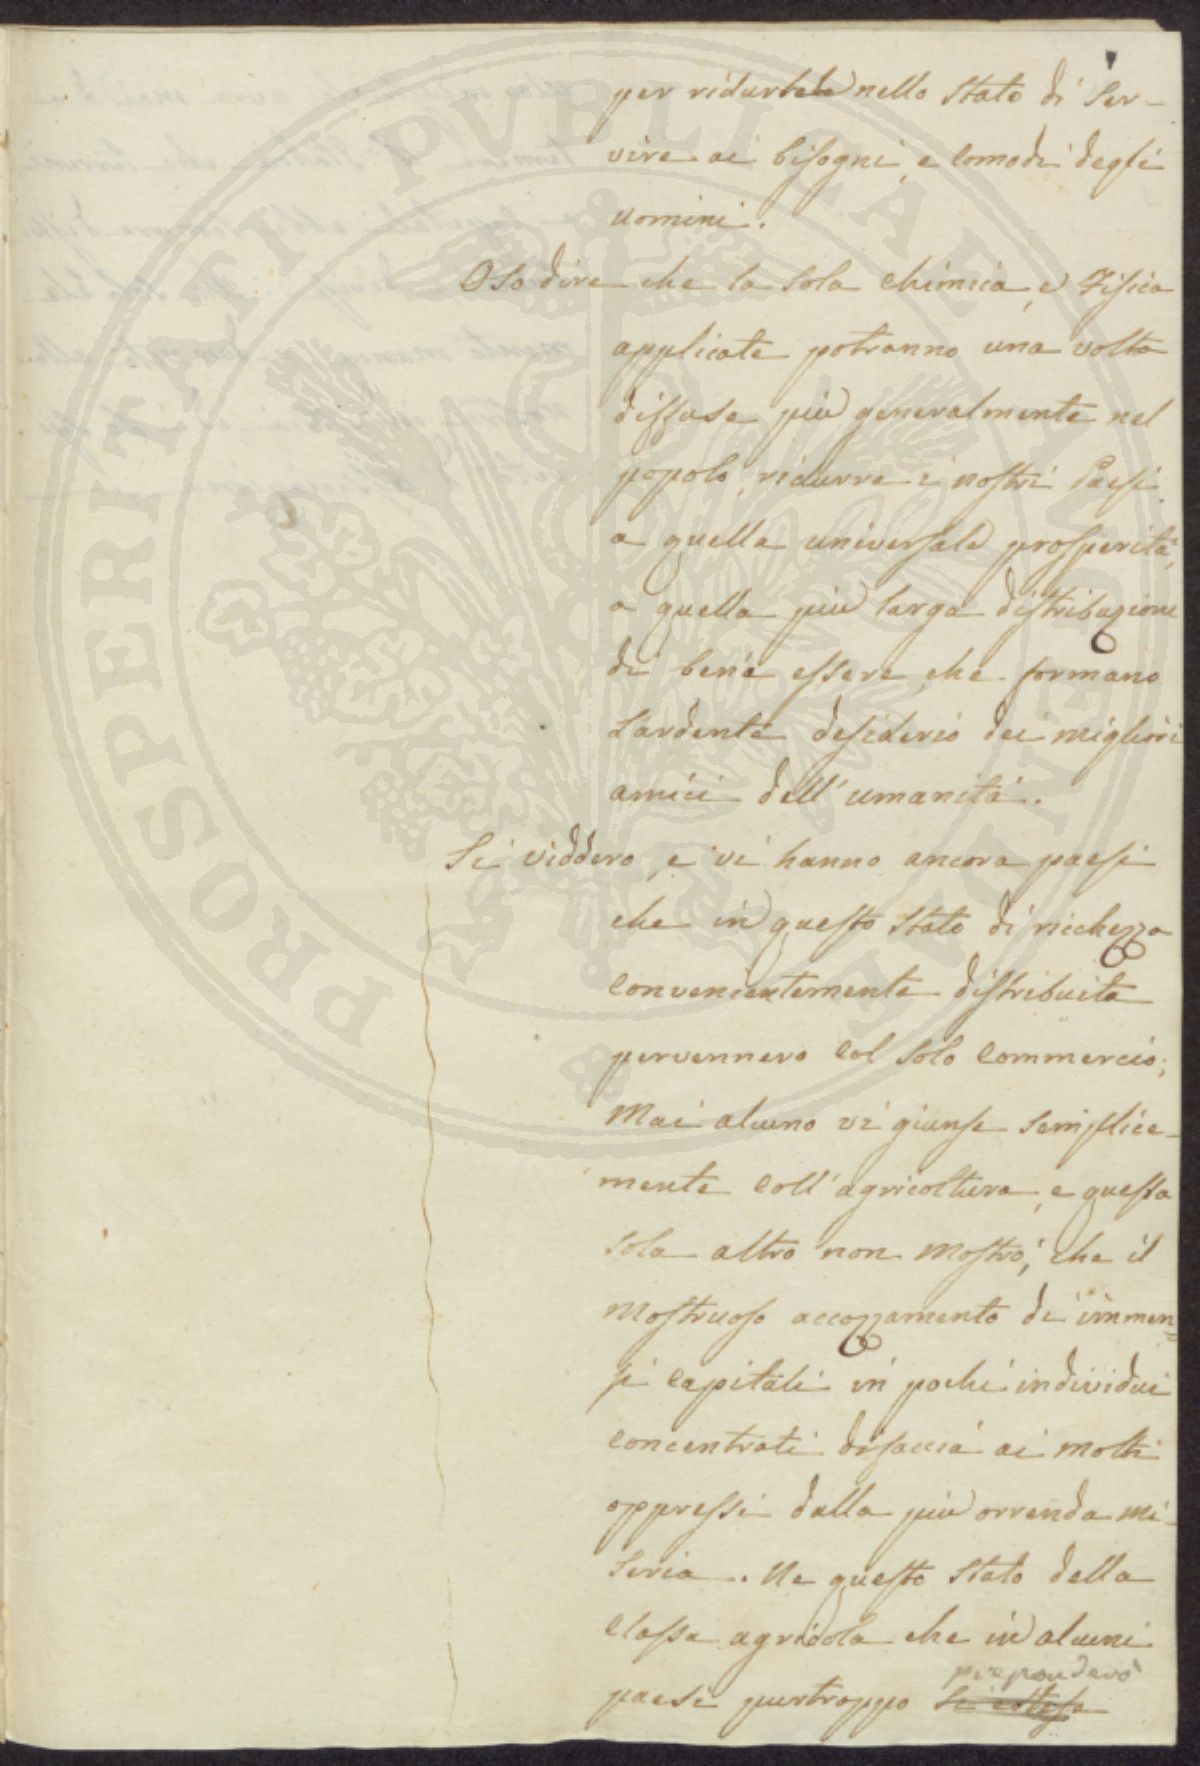 per ridurtele nello stato di ser-
vire ai bisogni, e comodi degli
uomini.
Oso dire che la sola chimica, e Fisica
applicate potranno una volta
diffuse più generalmente nel
popolo, ridurre i nostri Paesi
a quella universale prosperità,
a quella più larga distribuzione
di bene essere, che formano
l'ardente desiderio dei migliori
amici dell'umanità.
Si viddero, e vi hanno ancora paesi
che in questo stato di ricchezza
convenientemente distribuita
pervennero col solo commercio;
Mai alcuno vi giunse semplice-
mente coll'agricoltura, e questa
sola altro non mostrò, che il
mostruoso accozzamento di immen=
si capitali in pochi individui
concentrati di faccia ai molti
oppressi dalla più orrenda mi-
seria. Ne questo stato della
classe agricola che in alcuni
preponderò
paesi purtroppo si estese
PROSPERITATI PVBLICAE